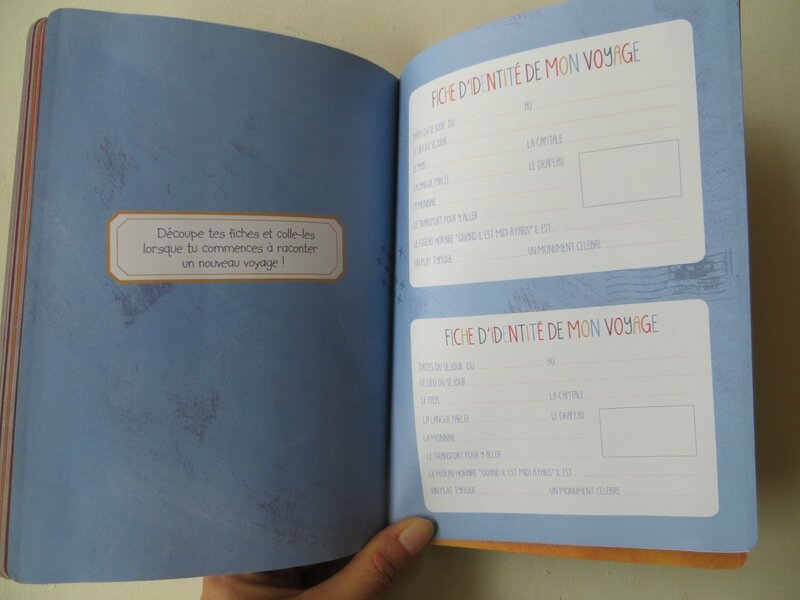 Découpe tes fiches et colle-les
lorsque tu commences à raconter
un nouveau voyage !
FICHE D'IDENTITÉ DE MON VOYAGE
DATES DU SÉJOUR DU AU
LE LIEU DU SÉJOUR
LE PAYS LA CAPITALE
LA LANGUE PARLÉE LE DRAPEAU
LA MONNAIE
LE TRANSPORT POUR Y ALLER
LE FUSEAU HORAIRE "QUAND IL EST MIDI À PARIS" IL EST...
UN PLAT TYPIQUE UN MONUMENT CÉLÈBRE
FICHE D'IDENTITÉ DE MON VOYAGE
DATES DU SÉJOUR DU AU
LE LIEU DU SÉJOUR
LE PAYS LA CAPITALE
LA LANGUE PARLÉE LE DRAPEAU
LA MONNAIE
LE TRANSPORT POUR Y ALLER
LE FUSEAU HORAIRE "QUAND IL EST MIDI À PARIS" IL EST...
UN PLAT TYPIQUE UN MONUMENT CÉLÈBRE